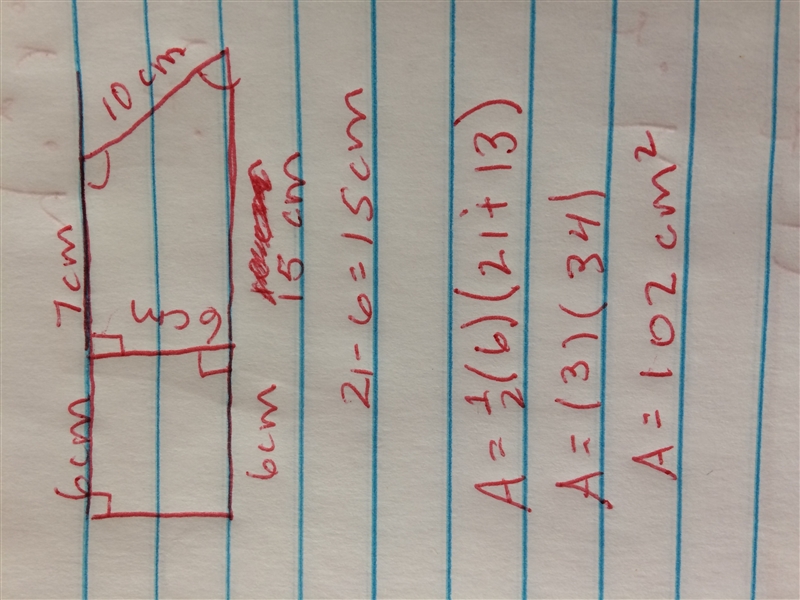 10 cm
6cm 7cm
6 cm
6cm 15 cm
21-6=15cm
A=½(6)(21+13)
A=(3)(34)
A=102 cm²